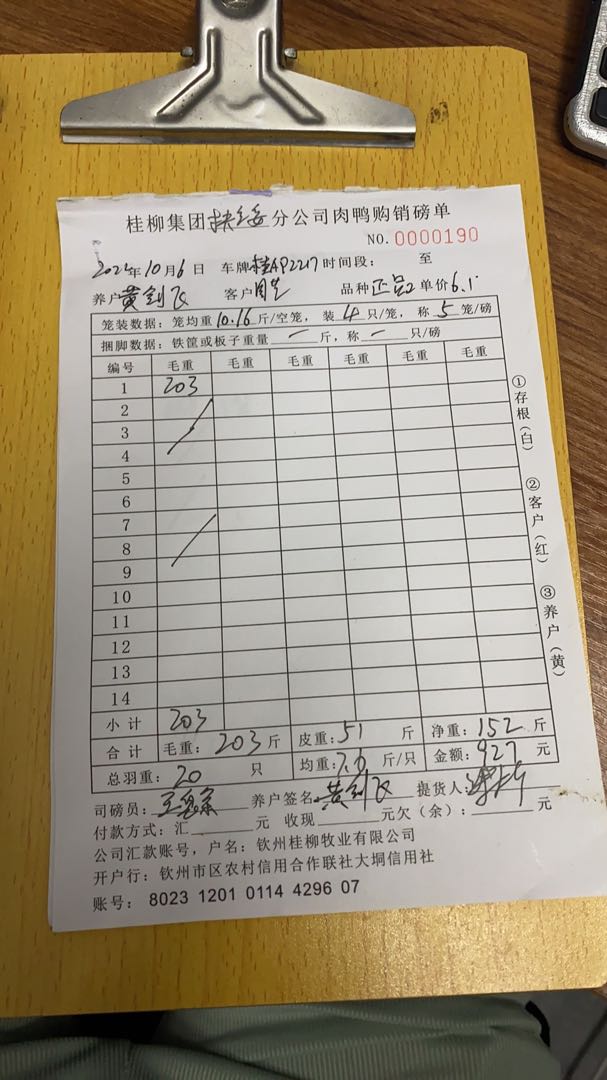 桂柳集团扶绥分公司肉鸭购销磅单
NO. 0000190
年10月6日 车牌桂AP2217时间段： 至
养户黄剑飞 客户 品种正品2单价6.1
笼装数据：笼均重10.16斤/空笼，装4只/笼，称5笼/磅
捆脚数据：铁筐或板子重量—斤，称—只/磅
编号 毛重 毛重 毛重 毛重 毛重 毛重
1 203
2
3
4
5
6
7
8
9
10
11
12
13
14
小计 203
合计 毛重：203斤 皮重：51斤 净重：152斤
总羽重：20只 均重：7.6斤/只 金额：927元
司磅员： 养户签名 黄剑飞 提货人：
付款方式：汇 元 收现 元欠（余）： 元
公司汇款账号，户名：钦州桂柳牧业有限公司
开户行：钦州市区农村信用合作联社大垌信用社
账号：8023 1201 0114 4296 07
①存根（白）
②客户（红）
③养户（黄）